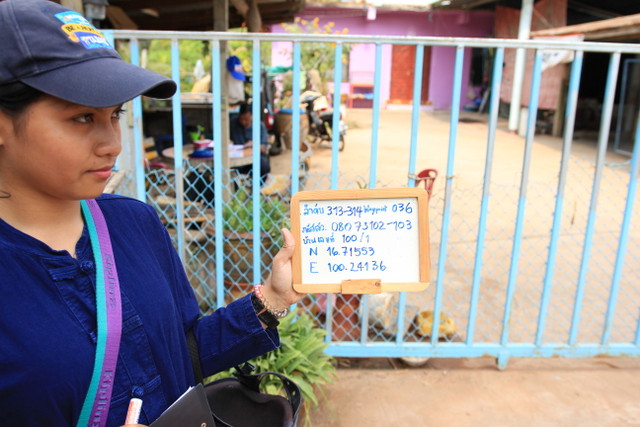 ลำดับ 313-314 Waypoint 036
รหัสส่ง. 08073102-103
บ้านเลขที่ 100/1
N 16.71553
E 100.24136